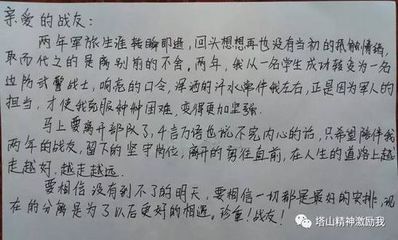 亲爱的战友:
两年军旅生涯转瞬即逝,回头想想再也没有当初的抵触情绪,
取而代之的是离别前的不舍。两年,我从一名学生成功转变为一名
边防武警战士,响亮的口令,挥洒的汗水牵伴我左右,正是因为军人的
担当,才使我克服种种困难,变得更加坚强。
马上要离开部队了,千言万语也说不完内心的话,只希望陪伴我
两年的战友,留下的坚守岗位,离开的勇往直前,在人生的道路上越
走越好,越走越远。
要相信没有到不了的明天,要相信一切都是最好的安排,现
在的分离是为了以后更好的相遇。珍重!战友!
塔山精神激励我